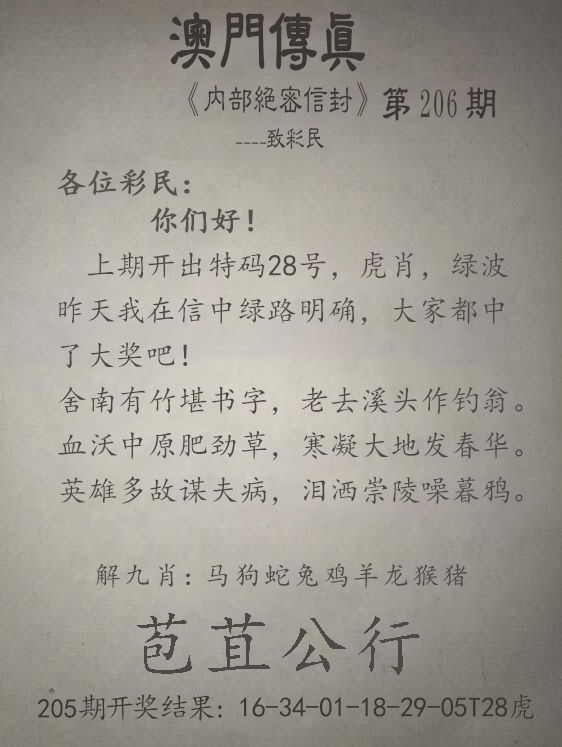 澳門傳真
《内部絕密信封》第206期
----致彩民
各位彩民：
你们好！
上期开出特码28号，虎肖，绿波
昨天我在信中绿路明确，大家都中
了大奖吧！
舍南有竹堪书字，老去溪头作钓翁。
血沃中原肥劲草，寒凝大地发春华。
英雄多故谋夫病，泪洒崇陵噪暮鸦。
解九肖：马狗蛇兔鸡羊龙猴猪
苞苴公行
205期开奖结果：16-34-01-18-29-05T28虎